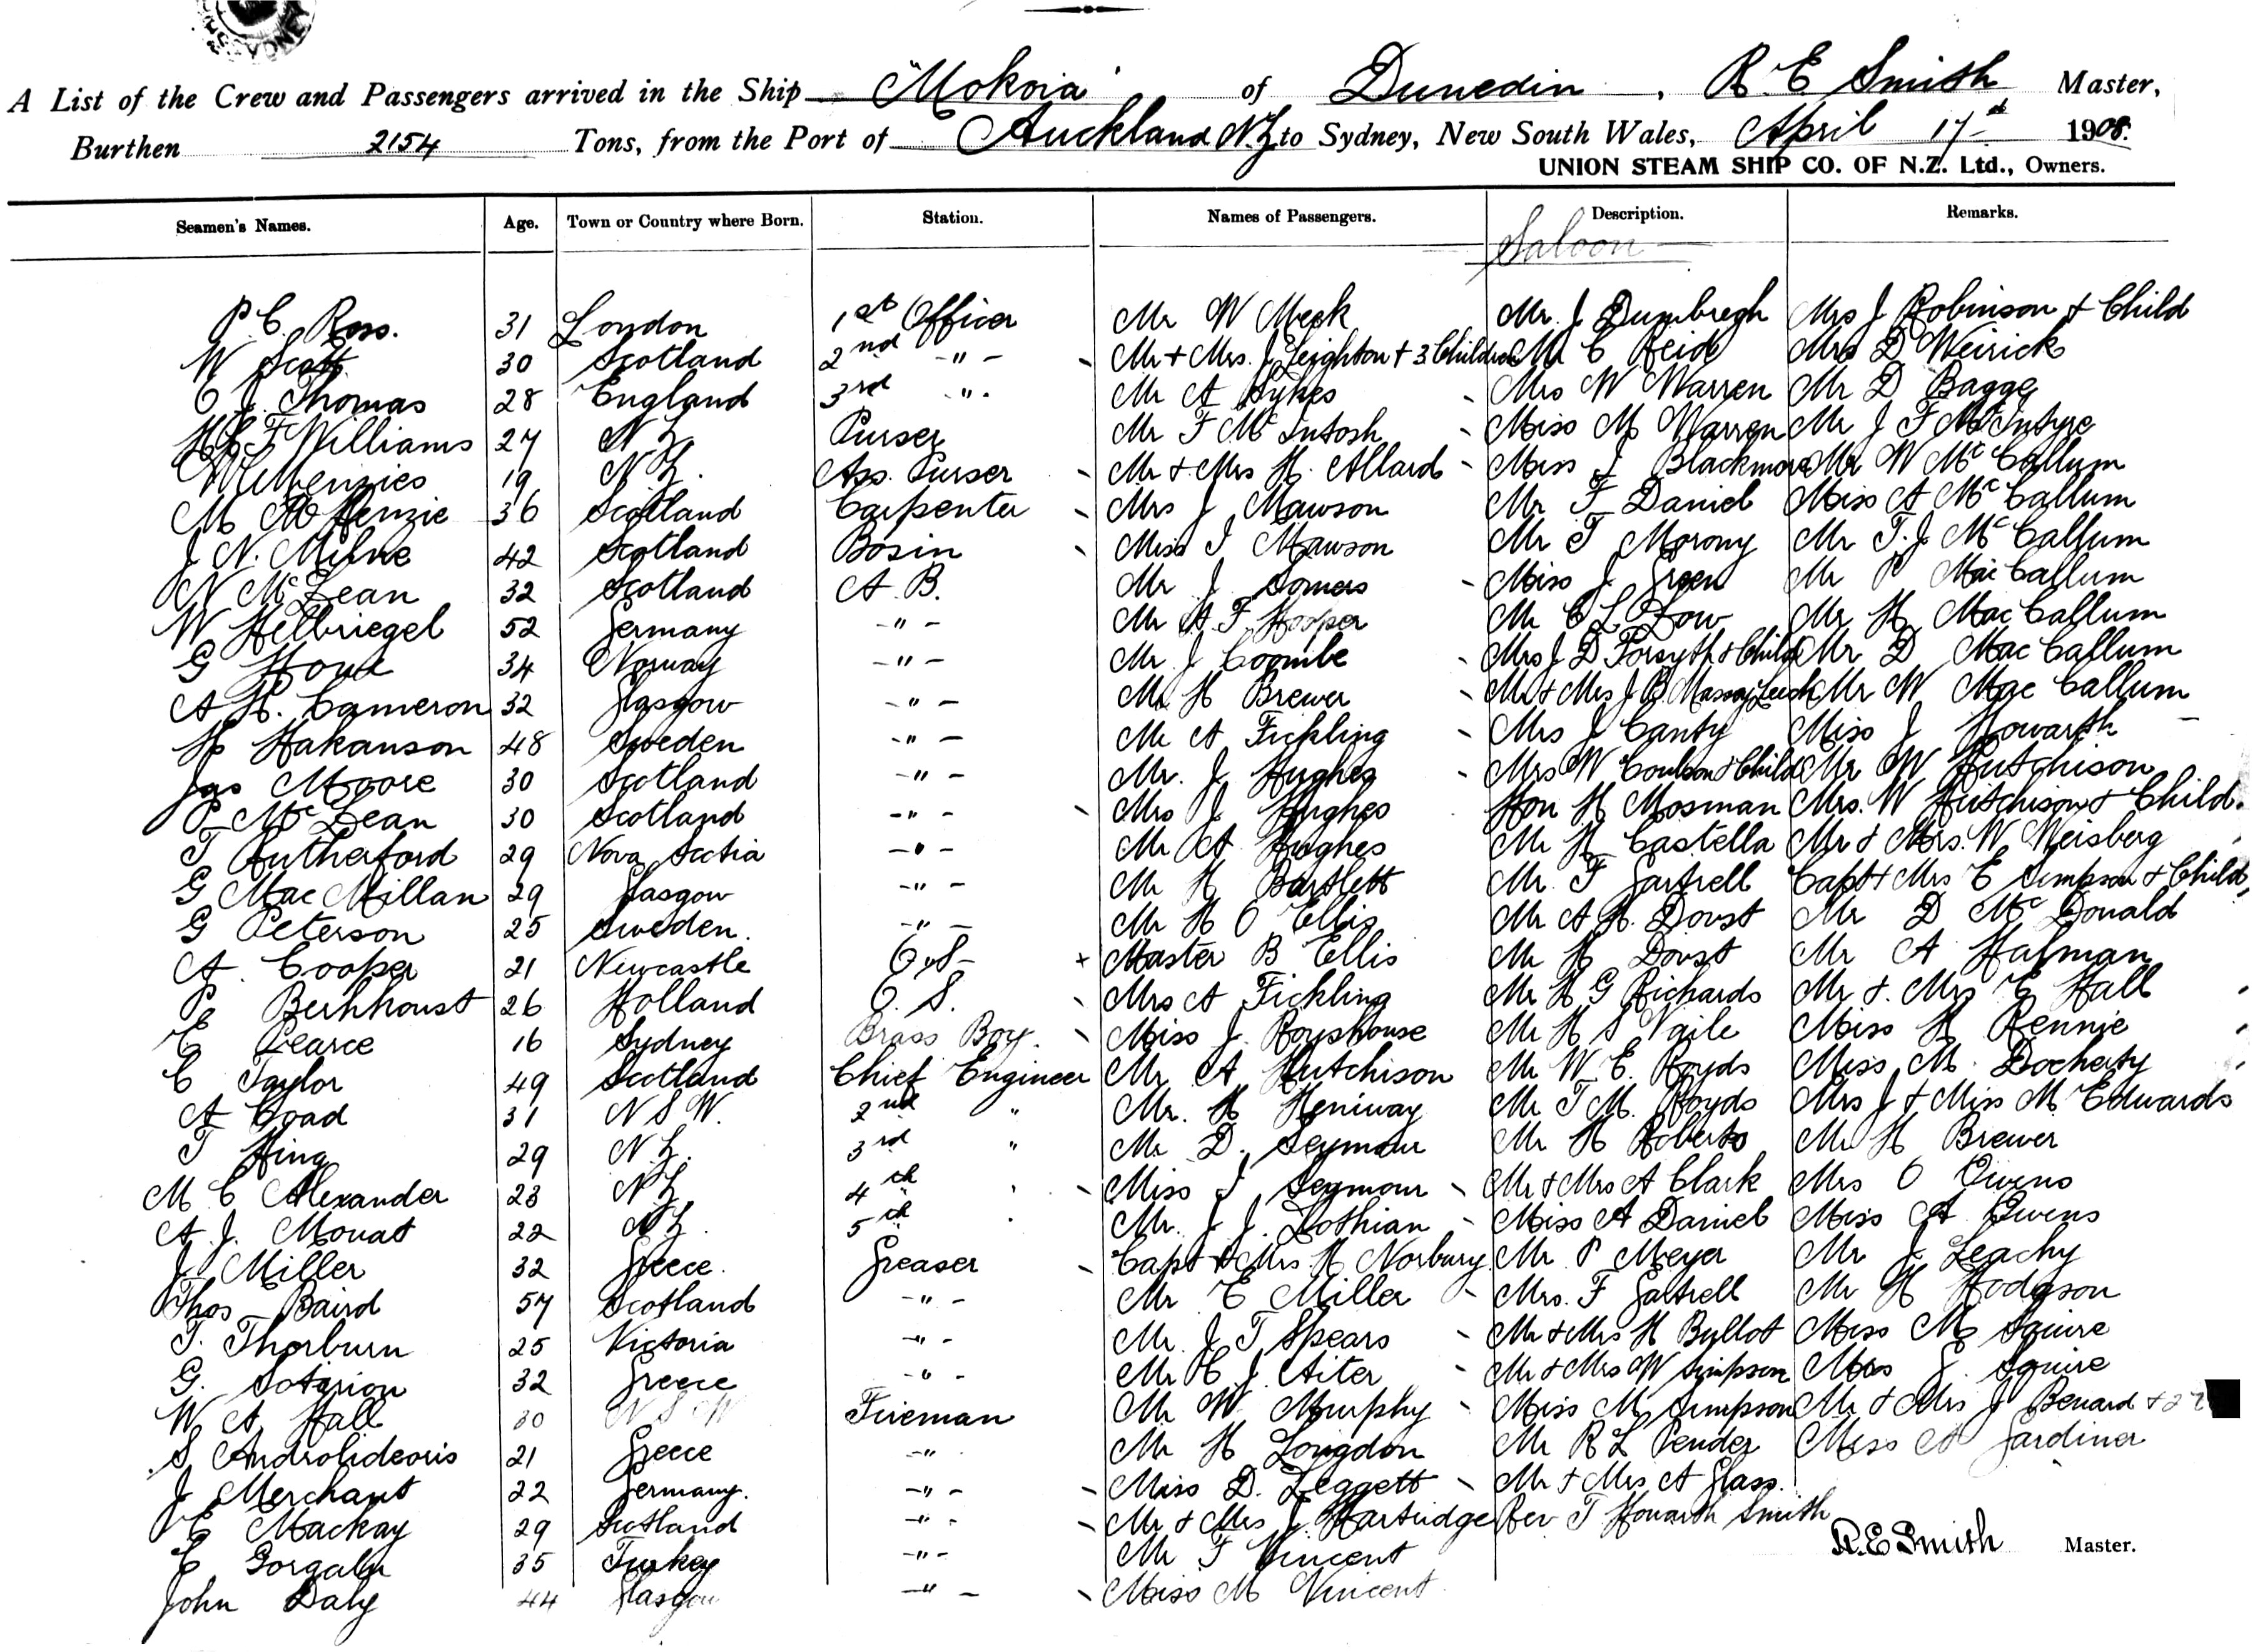 A List of the Crew and Passengers arrived in the Ship "Mokoia" of Dunedin, R. E Smith Master,
Burthen 2154 Tons, from the Port of Auckland N.Z to Sydney, New South Wales, April 17th 1908.
UNION STEAM SHIP CO. OF N.Z. Ltd., Owners.
Seamen's Names. Age. Town or Country where Born. Station. Names of Passengers. Description. Remarks.
Saloon
P. C. Ross. 31 London 1st Officer Mr W Meek Mr. J Dumbregh Mrs J Robinson & Child
W Scott 30 Scotland 2nd -"- Mr & Mrs. J Leighton & 3 Children Mr C Reid Mrs D Weirick
C J. Thomas 28 England 3rd ". Mr A Sykes Mrs W Warren Mr D Bagge
H L F Williams 27 N Z. Purser Mr F McIntosh Miss M Warren Mr J F McIntyre
W Menzies 19 N Z. Ass. Purser Mr & Mrs H. Allard Miss J Blackmore Mr W McCallum
M McKenzie 36 Scotland Carpenter Mrs J Mawson Mr F Daniel Miss A McCallum
J N. Milne 42 Scotland Bosin Miss I Mawson Mr T Morony Mr T. J McCallum
N McLean 32 Scotland A. B. Mr J Somers Miss J Green Mr P MacCallum
W Helbriegel 52 Germany -"- Mr A. F Hooper Mr C L Dow Mr H MacCallum
G 34 Norway -"- Mr J Coombe Mrs J D Forsyth & Child Mr D MacCallum
A H. Cameron 32 Glasgow -"- Mr H Brewer Mr & Mrs J B Massey Leech Mr W MacCallum
H Hakanson 48 Sweden -"- Mr A Fickling Mrs J Canty Miss J Howarth
Jas Moore 30 Scotland -"- Mr. J Hughes Mrs W Coulson & Child Mr W Hutchison
P McLean 30 Scotland -"- Mrs J Hughes Hon H Mosman Mrs. W Hutchison & Child.
T Rutherford 29 Nova Scotia -"- Mr A Hughes Mr H Castella Mr & Mrs. W Weisberg
G MacMillan 29 Glasgow -"- Mr H Bartlett Mr. F Gartrell Capt & Mrs E Simpson & Child,
G Peterson 25 Sweden. -"- Mr H O Ellis Mr A H. Doust Mr D McDonald
A. Cooper 21 Newcastle O.S- Master B Ellis Mr H Doust Mr A Halman
P Berkhoust 26 Holland O. S. Mrs A Fickling Mr H G Richards Mr &. Mrs E Hall
E Pearce 16 Sydney Brass Boy. Miss J. Royshouse Mr H S Vaile Miss H Rennie
C Taylor 49 Scotland Chief Engineer Mr A Hutchison Mr W. E. Royds Miss M. Docherty
A Coad 31 N S W. 2nd " Mr. H Heniway Mr T M. Royds Mrs J & Miss M Edwards
T King 29 N Z. 3rd " Mr D. Seymour Mr H Roberts Mr H Brewer
M C Alexander 23 N Z 4th Miss J Seymour Mr & Mrs A Clark Mrs O Owens
A. J. Mouat 22 N Z. 5th Mr. J J. Lothian Miss A Daniel Miss A Owens
J Miller 32 Greece. Greaser Capt & Mrs H Norbury Mr P Meyer Mr J Leachy
Thos Baird 57 Scotland -"- Mr E Miller Mrs. F Gartrell Mr H Hodgson
T. Thorburn 25 Victoria -"- Mr. J T Spears Mr & Mrs H Bullot Miss M Squire
G. Sotirion 32 Greece -"- Mr H J. Aiter Mr & Mrs W Simpson Miss J. Squire
W A Hall 30 N S W Fireman Mr W. Murphy Miss M Simpson Mr & Mrs J Benard & 2
S. 21 Greece -"- Mr H Longdon Mr R L Pender Miss A Gardiner
J Merchant 22 Germany. -"- Miss D. Leggett Mr & Mrs A Glass.
E Mackay 29 Scotland -"- Mr & Mrs J Hartridge Rev T Howarth Smith
E Gorgaln 35 Turkey -"- Mr F Vincent R. E Smith Master.
John Daly 44 Glasgow -"- Miss M Vincent